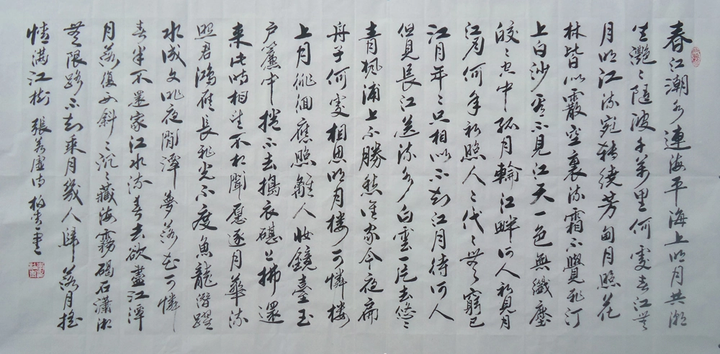 春江潮水連海平海上明月共潮
生灩〻隨波千萬里何處春江無
月明江流宛轉繞芳甸月照花
林皆似霰空裏流霜不覺飛汀
上白沙看不見江天一色無纖塵
皎〻空中孤月輪江畔何人初見月
江月何年初照人〻代〻無窮已
江月年〻只相似不知江月待何人
但見長江送流水白雲一片去悠〻
青楓浦上不勝愁誰家今夜扁
舟子何處相思明月樓可憐樓
上月徘徊應照離人妝鏡臺玉
戶簾中捲不去搗衣砧上拂還
來此時相望不相聞願逐月華流
照君鴻雁長飛光不度魚龍潛躍
水成文昨夜閒潭夢落花可憐
春半不還家江水流春去欲盡江潭
月落復西斜〻沉〻藏海霧碣石瀟湘
無限路不知乘月幾人歸落月搖
情滿江樹 張若虛詩